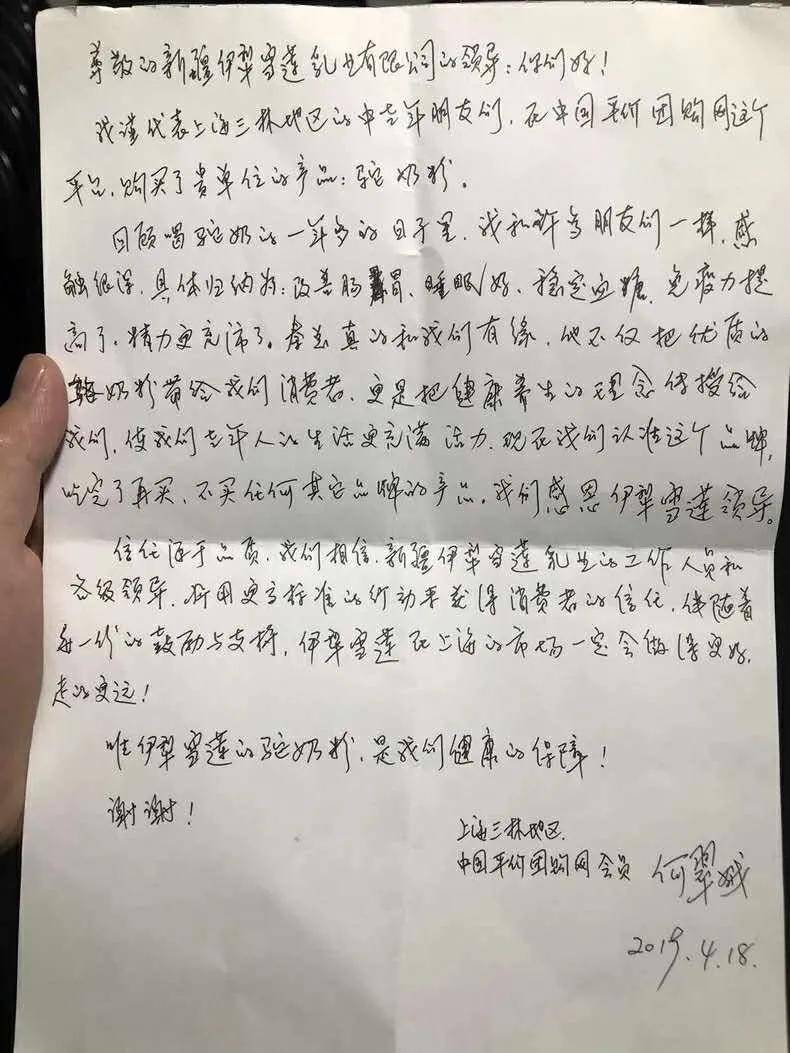 尊敬的新疆伊犁雪莲乳业有限公司的领导：你们好！
我谨代表上海三林地区的中老年朋友们，在中国平价团购网这个
平台，购买了贵单位的产品：驼奶粉。
回顾喝驼奶的一年多的日子里，我和许多朋友们一样，感
触很深，具体归纳为：改善肠胃、睡眠好、稳定血糖、免疫力提
高了，精力更充沛了。李总真的和我们有缘，他不仅把优质的
驼奶粉带给我们消费者，更是把健康养生的理念传授给
我们，使我们老年人的生活更充满活力，现在我们认准这个品牌，
吃完了再买，不买任何其它品牌的产品。我们感恩伊犁雪莲领导。
信任源于品质，我们相信，新疆伊犁雪莲乳业的工作人员和
各级领导，将用更高标准的行动来获得消费者的信任，伴随着
每一份的鼓励与支持，伊犁雪莲在上海的市场一定会做得更好，
走的更远！
唯伊犁雪莲的驼奶粉，是我们健康的保障！
谢谢！
上海三林地区
中国平价团购网会员 何翠娥
2019.4.18.